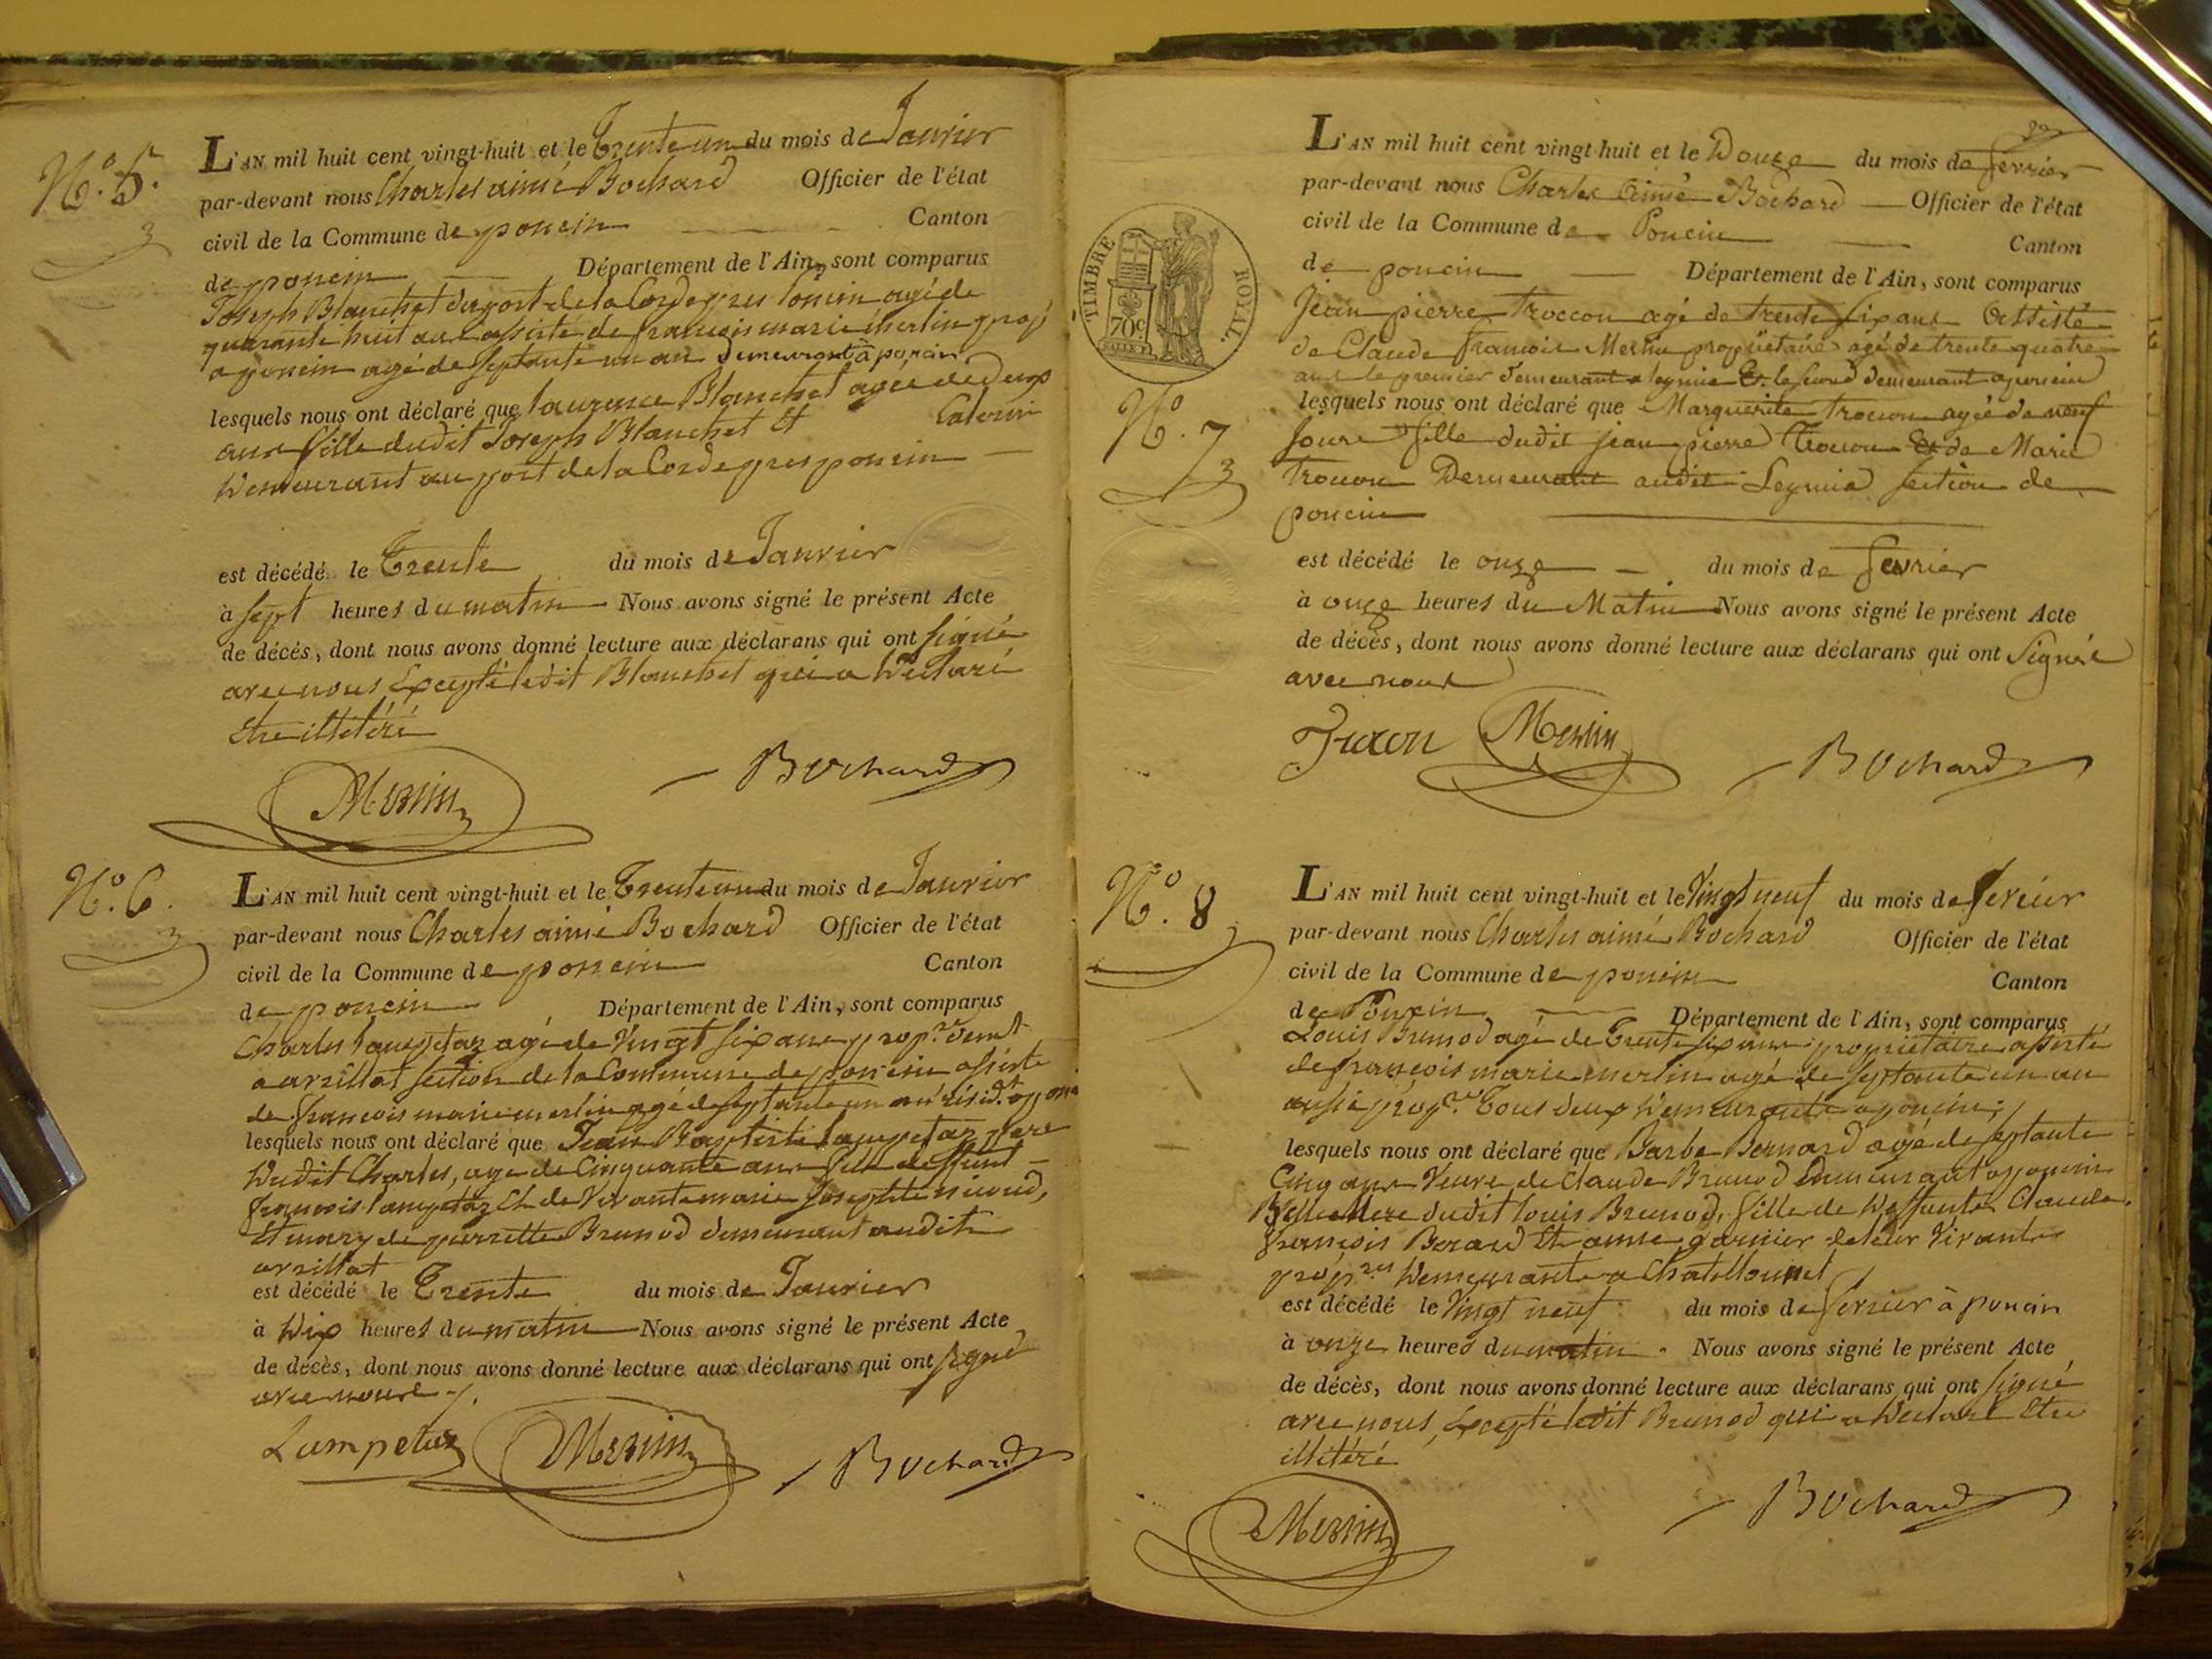 N.º 5.
3
L'AN mil huit cent vingt-huit et le Trente un du mois de Janvier
par-devant nous Charles aimé Bochard Officier de l'état
civil de la Commune de poncin Canton
de poncin Département de l'Ain, sont comparus
Joseph Blanchet du port de la Corde pres poncin agé de
quarante huit ans assisté de francois marie merlin prop.
a poncin agé de septante un an demeurant à poncin
lesquels nous ont déclaré que laurence Blanchet agée de deux
ans fille dudit Joseph Blanchet Et
Demeurant au port de la Corde pres poncin
est décédé le Trente du mois de Janvier
à sept heures du matin Nous avons signé le présent Acte
de décès, dont nous avons donné lecture aux déclarans qui ont signé
avec nous Excepté ledit Blanchet qui a Déclaré
Etre illitéré
Merlin
Bochard
N.º 6.
3
L'AN mil huit cent vingt-huit et le Trente un du mois de Janvier
par-devant nous Charles aimé Bochard Officier de l'état
civil de la Commune de poncin Canton
de poncin Département de l'Ain, sont comparus
Charles lampetaz agé de Vingt six ans prop.re dem.t
a arzillat section de la Commune de poncin assisté
de francois marie merlin agé de septante un an résid.t a
lesquels nous ont déclaré que Jean Baptiste lampetaz pere
Dudit Charles, agé de Cinquante ans fils de deffunt
francois lampetaz Et de Vivante marie Josephte nicoud,
Et mary de pierrette Brunod demeurant audit
arzillat
est décédé le Trente du mois de Janvier
à Dix heures du matin Nous avons signé le présent Acte
de décès, dont nous avons donné lecture aux déclarans qui ont signé
avec nous
Lampetaz
Merlin
Bochard
TIMBRE ROYAL.
70c
L'AN mil huit cent vingt-huit et le Douze du mois de fevrier
par-devant nous Charles Aimé Bochard Officier de l'état
civil de la Commune de Poncin Canton
de poncin Département de l'Ain, sont comparus
Jean pierre Troccon agé de trente six ans Assisté
de Claude francois Merlin propriétaire agé de trente quatre
ans le premier demeurant a leymia Et le second demeurant a poncin
N.º 7
3
lesquels nous ont déclaré que Marguerite trocon agée de neuf
jours fille dudit jean pierre Trocon Et de Marie
Trocon Demeurant audit Leymia section de
poncin
est décédé le onze du mois de fevrier
à onze heures du Matin Nous avons signé le présent Acte
de décès, dont nous avons donné lecture aux déclarans qui ont Signé
avec nous
Merlin
Bochard
N.º 8
L'AN mil huit cent vingt-huit et le Vingt neuf du mois de fevrier
par-devant nous Charles aimé Bochard Officier de l'état
civil de la Commune de poncin Canton
de Poncin Département de l'Ain, sont comparus
Louis Brunod agé de Trente six ans propriétaire assisté
de francois marie merlin agé de septante un an
aussi prop.re Tous deux Demeurants a poncin
lesquels nous ont déclaré que Barbe Bernard agé de septante
Cinq ans Veuve de Claude Brunod Demeurant a poncin
Belle Mere dudit louis Brunod, fille de Deffunts Claude
francois Et anne garnier de leur Vivants
prop.res Demeurants a Chatillonnet
est décédé le Vingt neuf du mois de fevrier à poncin
à onze heures du matin. Nous avons signé le présent Acte
de décès, dont nous avons donné lecture aux déclarans qui ont signé
avec nous, Excepté ledit Brunod qui a Declaré Etre
illitéré
Merlin
Bochard